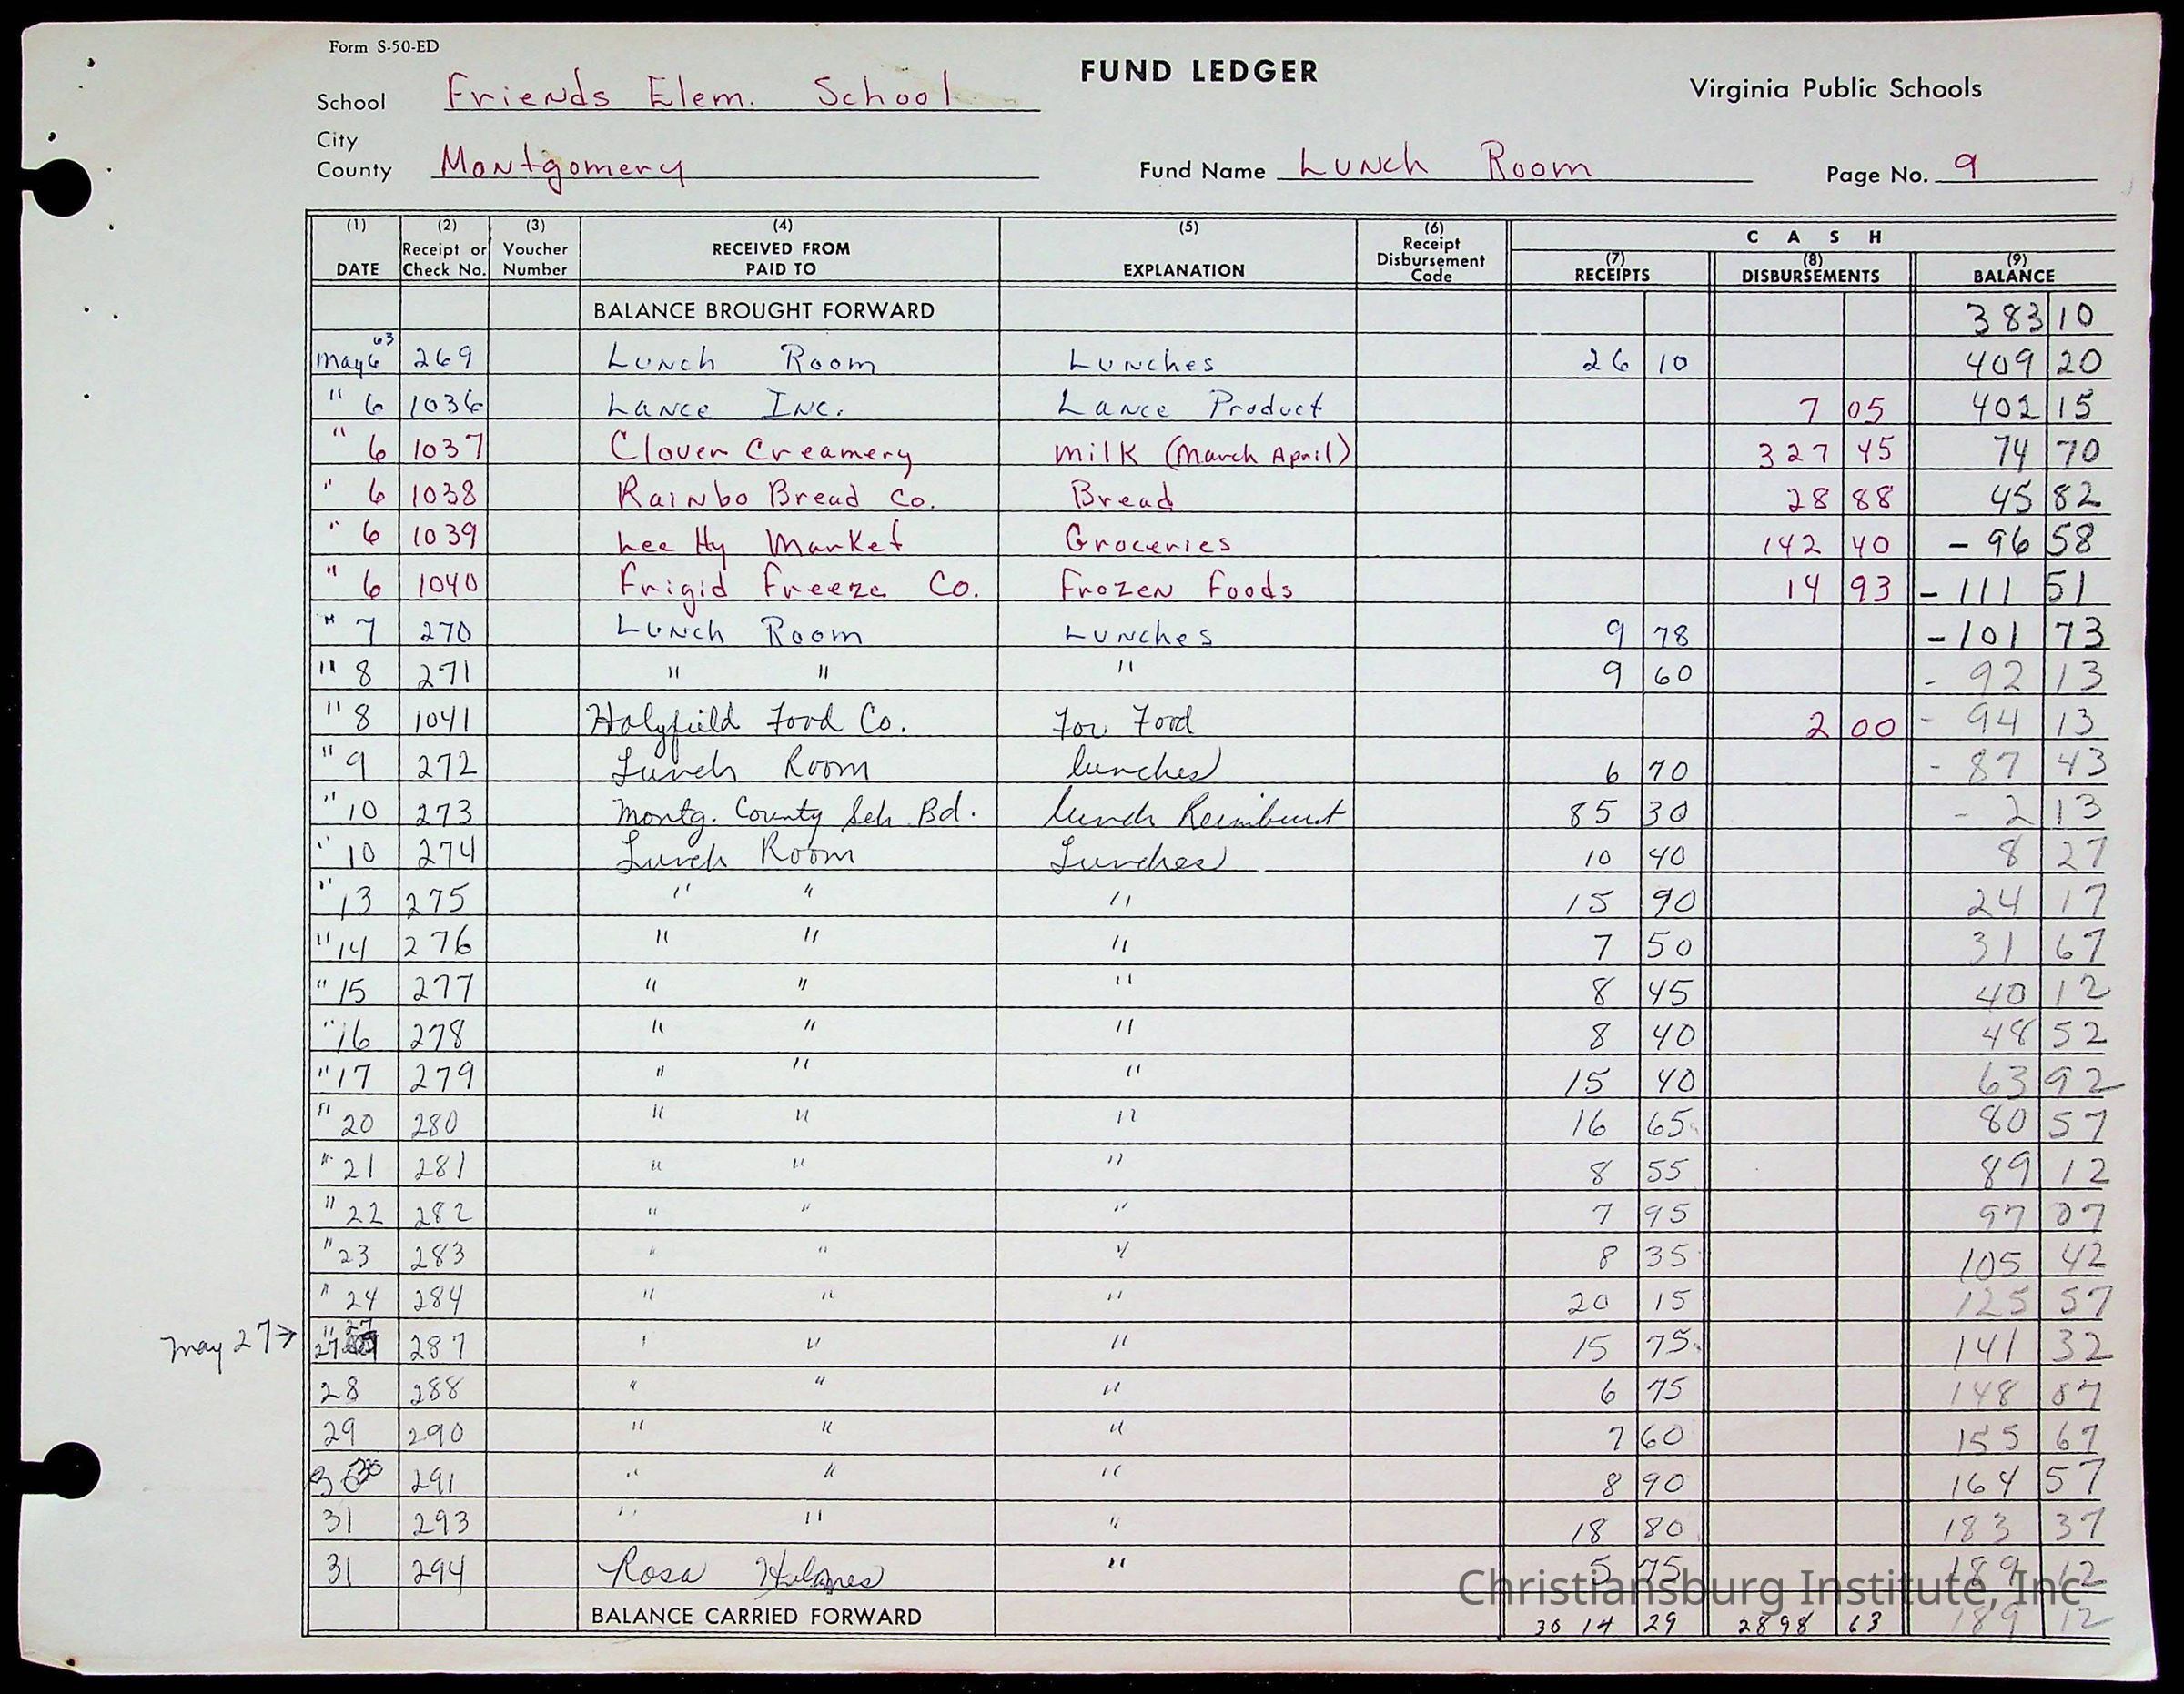 Form S-50-ED
FUND LEDGER
Virginia Public Schools
School Friends Elem. School
City
County Montgomery
Fund Name Lunch Room
Page No. 9
(1) DATE (2) Receipt or Check No. (3) Voucher Number (4) RECEIVED FROM PAID TO (5) EXPLANATION (6) Receipt Disbursement Code CASH (7) RECEIPTS (8) DISBURSEMENTS (9) BALANCE
BALANCE BROUGHT FORWARD 383 10
63
May 6 269 Lunch Room Lunches 26 10 409 20
" 6 1036 Lance Inc. Lance Product 7 05 402 15
" 6 1037 Clover Creamery Milk (March April) 327 45 74 70
" 6 1038 Rainbo Bread Co. Bread 28 88 45 82
" 6 1039 Lee Hy Market Groceries 142 40 - 96 58
" 6 1040 Frigid Freeze Co. Frozen Foods 14 93 - 111 51
" 7 270 Lunch Room Lunches 9 78 - 101 73
" 8 271 " " " 9 60 - 92 13
" 8 1041 Holyfield Food Co. For Food 2 00 - 94 13
" 9 272 Lunch Room lunches 6 70 - 87 43
" 10 273 Montg. County Sch Bd. lunch Reimburst 85 30 - 2 13
" 10 274 Lunch Room Lunches 10 40 8 27
" 13 275 " " " 15 90 24 17
" 14 276 " " " 7 50 31 67
" 15 277 " " " 8 45 40 12
" 16 278 " " " 8 40 48 52
" 17 279 " " " 15 40 63 92
" 20 280 " " " 16 65 80 57
" 21 281 " " " 8 55 89 12
" 22 282 " " " 7 95 97 07
" 23 283 " " " 8 35 105 42
" 24 284 " " " 20 15 125 57
May 27 → " 27 27 287 " " " 15 75 141 32
28 288 " " " 6 75 148 07
29 290 " " " 7 60 155 67
30 291 " " " 8 90 164 57
31 293 " " " 18 80 183 37
31 294 Rosa Holmes " 5 75 189 12
BALANCE CARRIED FORWARD 30 14 29 2898 63 189 12
Christiansburg Institute, Inc